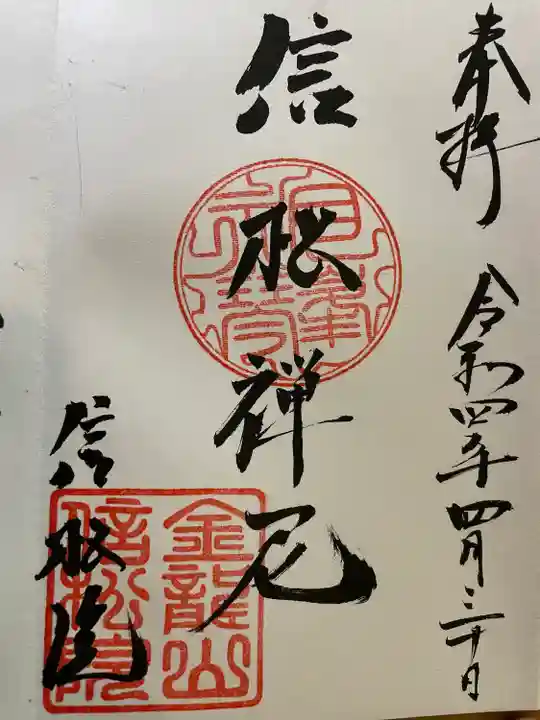 奉拝
令和四年四月三十日
信松禅尼
信松院
金龍山
信松院